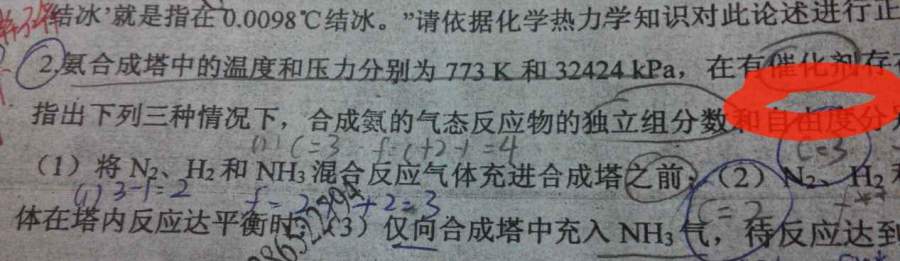 结冰’就是指在0.0098℃结冰。”请依据化学热力学知识对此论述进行正
2.氨合成塔中的温度和压力分别为 773 K 和 32424 kPa，在有催化剂存在
指出下列三种情况下，合成氨的气态反应物的独立组分数和自由度分别
(1) C=3 f=C+2-1=4 C=3
（1）将 N₂、H₂ 和 NH₃ 混合反应气体充进合成塔之前；（2）N₂、H₂ 和
(1) 3-1=2 f=2-1+2=3 C=2
体在塔内反应达平衡时；（3）仅向合成塔中充入 NH₃ 气，待反应达到